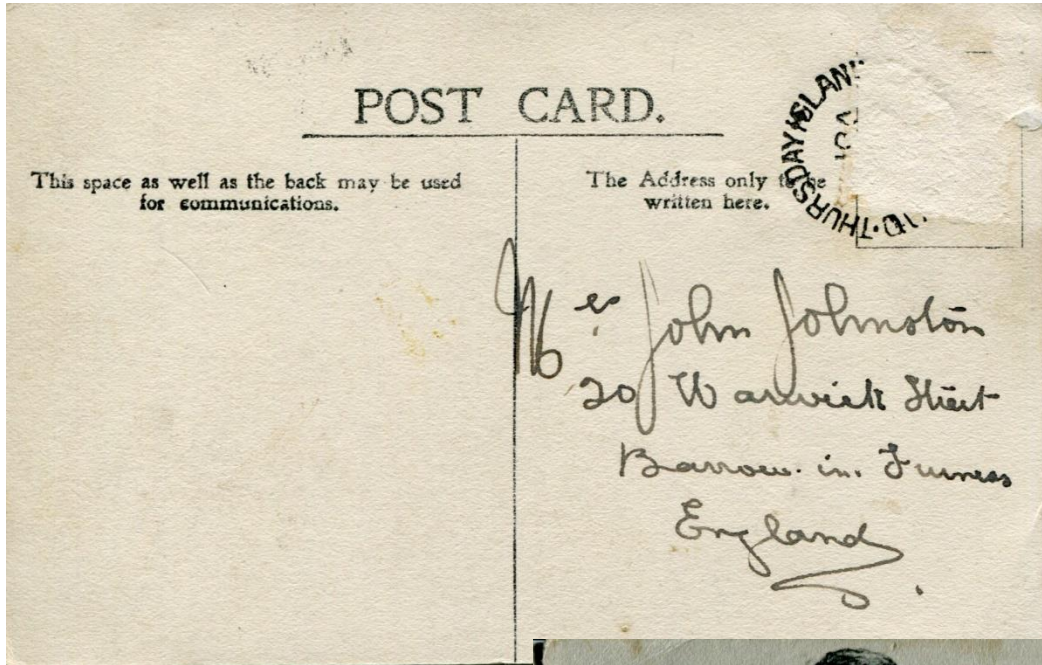 POST CARD.
This space as well as the back may be used
for communications.
The Address only to be
written here.
THURSDAY ISLAND
Mr. John Johnston
20 Warwick Street
Barrow. in. Furness
England